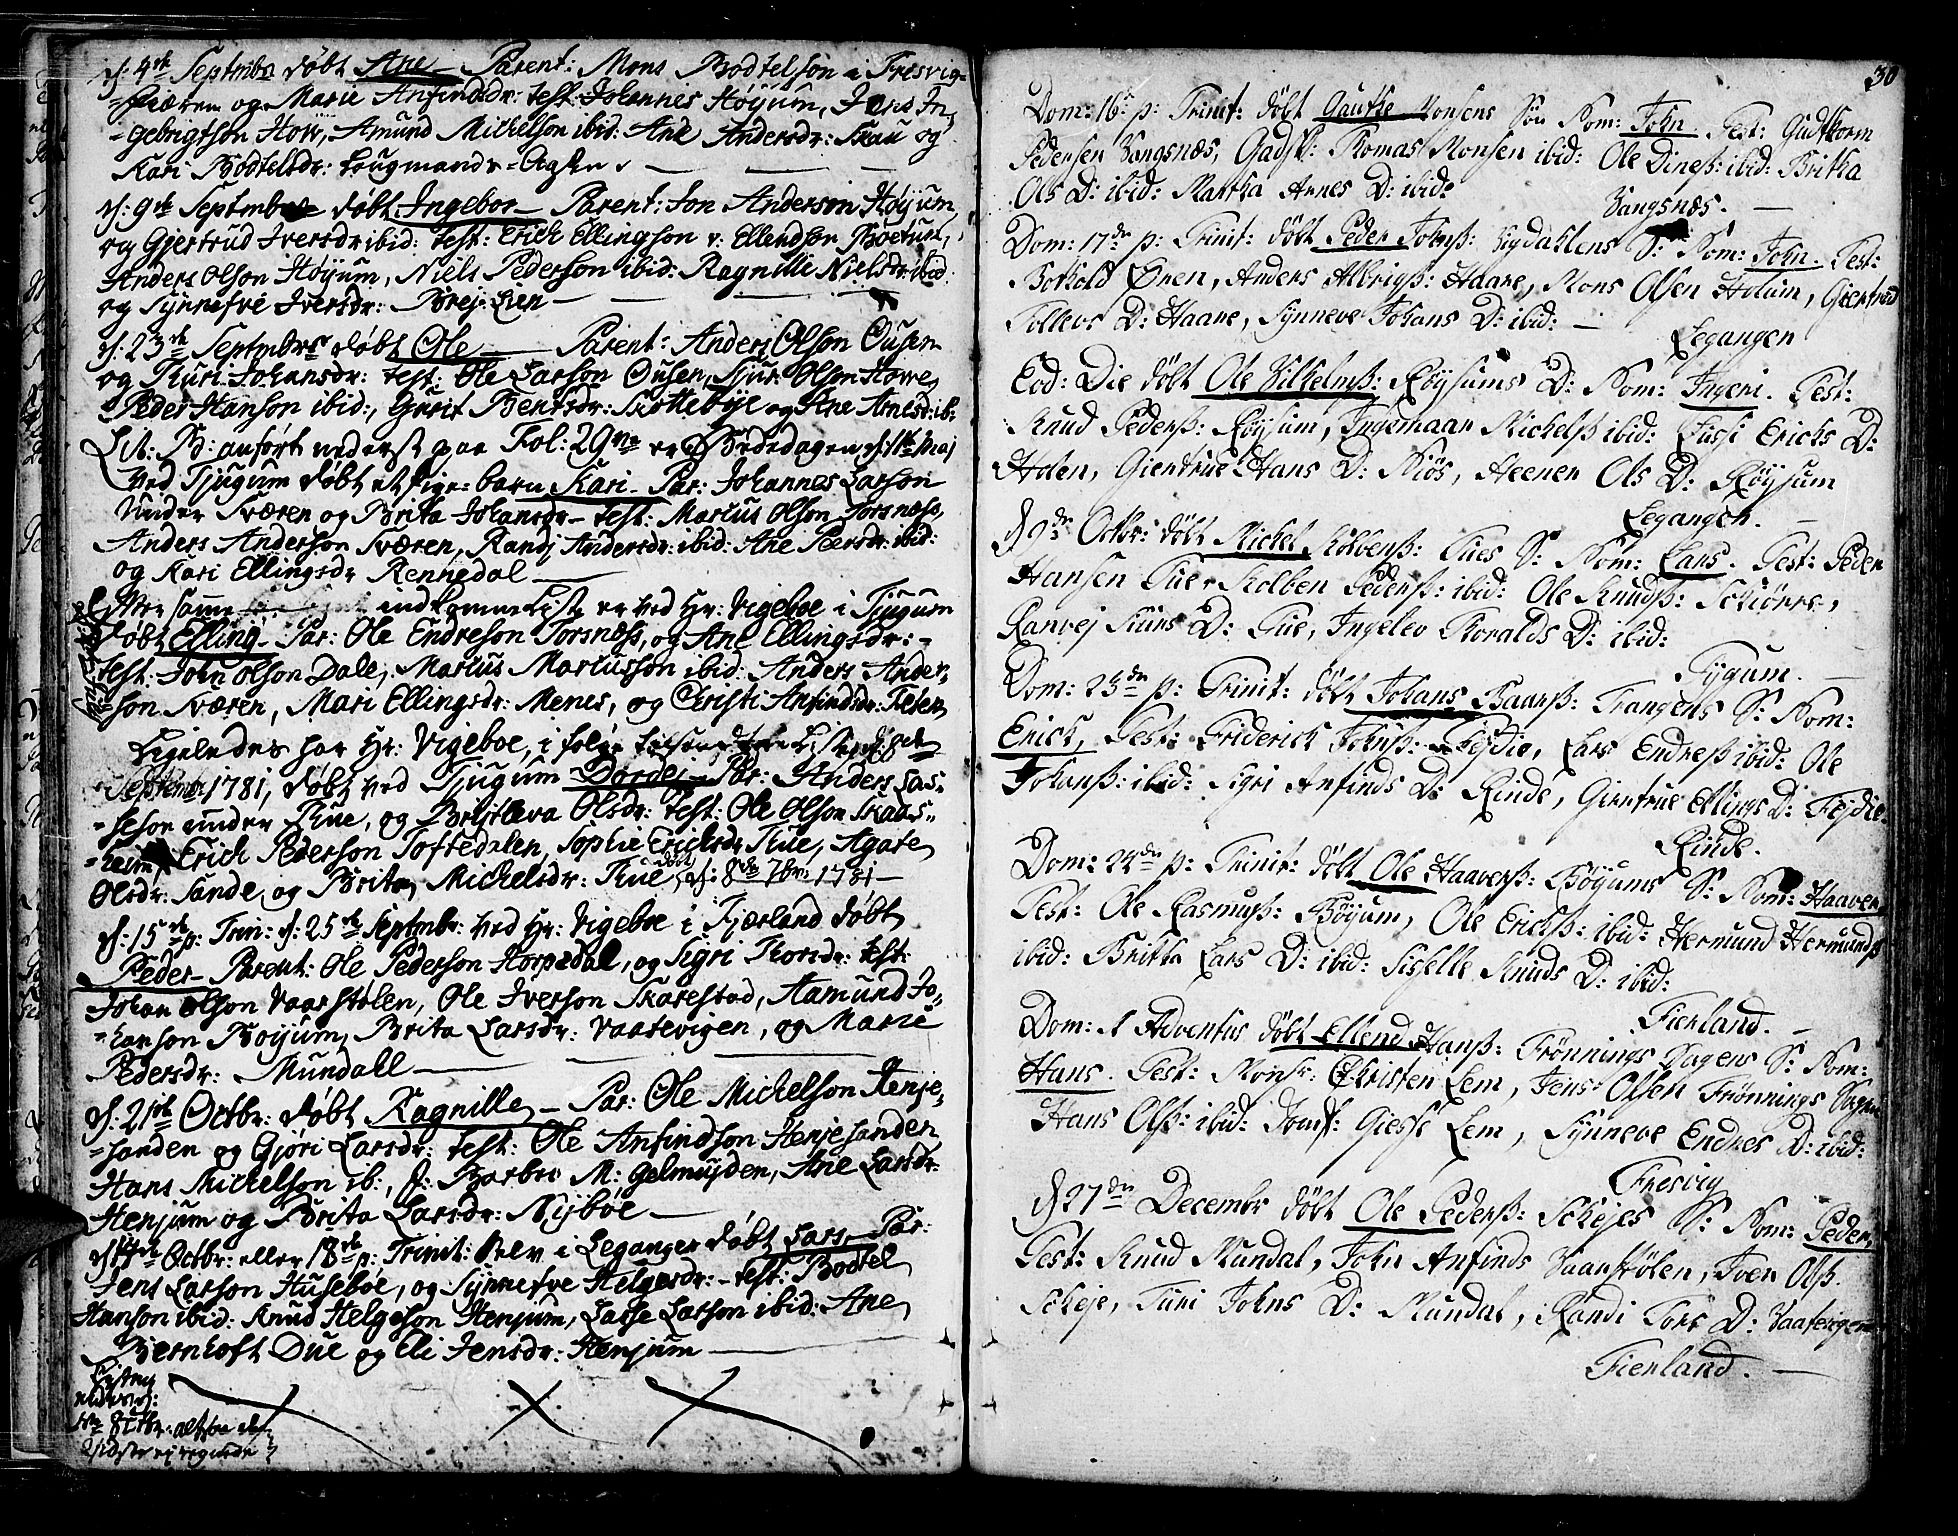 d: 4de Septmbr døbt Ane Parent: Mons Bodtelson i Fresvig-
=Fiæren og Marie Anfindsdr: test: Johannes Høyum, Jens In-
=gebrigtson Hov, Amund Michelson ibid: Ane Andersdr: Skau og
Kari Bodtelsdr: Lougmands-
d: 9de Septmbr døbt Ingebor Parent: Jon Anderson Høyum
og Gjertrud Iversdr ibid: test: Erich Ellingson v: Ellendson Bøetun,
Anders Olson Høyum, Niels Pederson ibid: Ragnille Nielsdr: ibid.
og Synnefve Iversdr: Brej: Lien
d: 23de Septmbrs døbt Ole Parent: Anders Olson Ousen
og Thuri Johansdr: test: Ole Larson Ousen, Sjur Olson Howe
Peder Hanson ibid:, Gurit Bentsdr: Skotteböe og Ane Arnesdr: ib:
Lit: B: anført nederst paa Fol: 29 er Bededagen d: 11te Maj
ved Tjugum døbt et Pige-barn Kari Par: Johannes Larson
under Sværen og Brita Johansdr test: Marcus Olson Torsnæss,
Anders Anderson Sværen, Randj Andersdr: ibid: Ane Peersdr: ibid:
og Kari Ellingsdr Rennedal
Efter samme indkomne Liste er ved Hr: Vigeboe i Tjugum
døbt Elling Par: Ole Endreson Torsnæss, og Ane Ellingsdr:
test: John Olson Dale, Marcus Marcusson ibid: Anders Ander-
son Sværen, Mari Ellingsdr: Menes, og Christi Anfindsdr: Feten
Ligeledes har Hr: Vigeboe, i følge
Septembr 1781, døbt ved Tjugum Dordej Par: Anders Las-
=seson under Thue, og Britteva Olsdr: test: Ole Olson Skaas-
=heim, Erich Pederson Toftedalen, Sophie Erichsdr Thue, Agate
Olsdr: Sande, og Brita Michelsdr: Thue døbt d: 8de 7br: 1781
d: 15de p: Trin: d: 25de Septmbr: ved Hr: Vigeboe i Fjærland døbt
Peder Parent: Ole Pederson Horpedal, og Sigri Thorsdr: test:
Johan Olson Vaarstølen, Ole Iverson Skarestad, Aamund Jo-
=hanson Bøyum, Brita Larsdr: Vaatevigen, og Marie
Pedersdr: Mundall
d: 21de Octbr: døbt Ragnille Par: Ole Michelson Henje-
=sanden og Gjøri Larsdr: test: Ole Anfindson Henjesanden
Hans Michelson ib:, J: Barbro M: Gelmuyden, Ane Larsdr:
Henjum og Brita Larsdr: Nybøe
d: 14de Octbr: eller 18de p: Trinit: blev i Leganger døbt Lars Par:
Jens Larson Huseböe, og Synnefve Helgesdr: test: Bodtel
Hanson ibid: Knud Helgeson Henjum, Lasse Larson ibid: Ane
Bernhoft Due og Eli Jensdr: Henjum
30
Dom: 16 p: Trinit: døbt Gauthe Jonsens Søn Nom: John. Test: Gudthorm
Pedersen Vangsnæs, Gadsk: Thomas Monsen ibid: Ole Dineß: ibid: Britha
Ols D: ibid: Martha Arnes D: ibid:
Vangsnæs.
Dom: 17de p: Trinit: døbt Peder Johnß: Sygdahlens S: Nom: John. Test:
Bothold Ønen, Anders Albrigß: Haane, Mons Olsen Holum, Giertrud
Tollevs D: Haane, Synneve Johans D: ibid:
Legangen
Eod: Die døbt Ole Vilhelmß: Røysums D: Nom: Ingeri. Test:
Knud Pederß: Røysum, Ingemaar Michelß ibid: Sussi Erichs D:
Holen, Giertrue Hans D: Niøs, Heenen Ols D: Røysum
Legangen.
d 9de Octbr: døbt Michel Kolbenß: Tues S: Nom: Lars. Test: Peder
Hansen Tue, Kolben Pederß: ibid: Ole Knudß: Schiørre,
Ranvej Siurs D: Tue, Ingelev Thoralds D: ibid:
Tygum.
Dom: 23de p: Trinit: døbt Johans Baarß: Trangens S: Nom:
Erick, Test: Friderick Johnß: Fejdie, Lars Endreß ibid: Ole
Johanß: ibid: Sigri Anfinds D: Rinde, Giertrue Ellings D: Fejdie.
Rinde.
Dom: 24de p: Trinit: døbt Ole Haaverß: Bøyums S: Nom: Haaver
Test: Ole Rasmusß: Bøyum, Ole Erichß: ibid: Hermund Hermundß
ibid: Britha Lars D: ibid: Sisselle Knuds D: ibid:
Fierland.
Dom: 1 Adventus døbt Ellend Hanß: Frønnings Hagens S: Nom:
Hans. Test: Monsr: Christen Lem, Jens Olsen Frønnings Hagen
Hans Olß: ibid: Jomf: Giesse Lem, Synneve Endres D: ibid:
Fresvig
d 27de Decembr døbt Ole Pederß: Schejes S: Nom: Peder,
Test: Knud Mundal, John Anfinds Vaarstølen, Iver Olß.
Scheje, Turi Johns D: Mundal, Randi Tors D: Vaatevigen
Fierland.